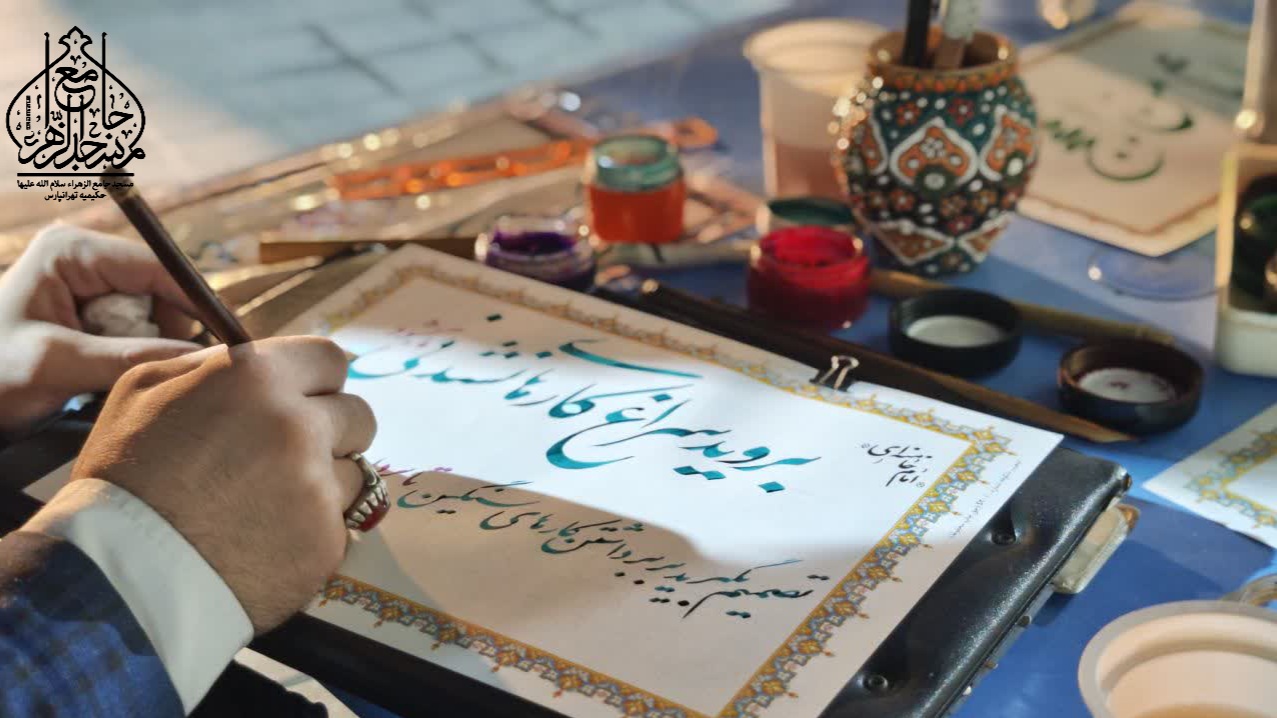 جامع
مسجد جامع الزهراء
مسجد جامع الزهراء سلام الله علیها
حکیمیه تهرانپارس
امام خامنه‌ای
بروید سراغ کارهای نشدنی
تصمیم بگیرید بر برداشتن کارهای سنگین تا